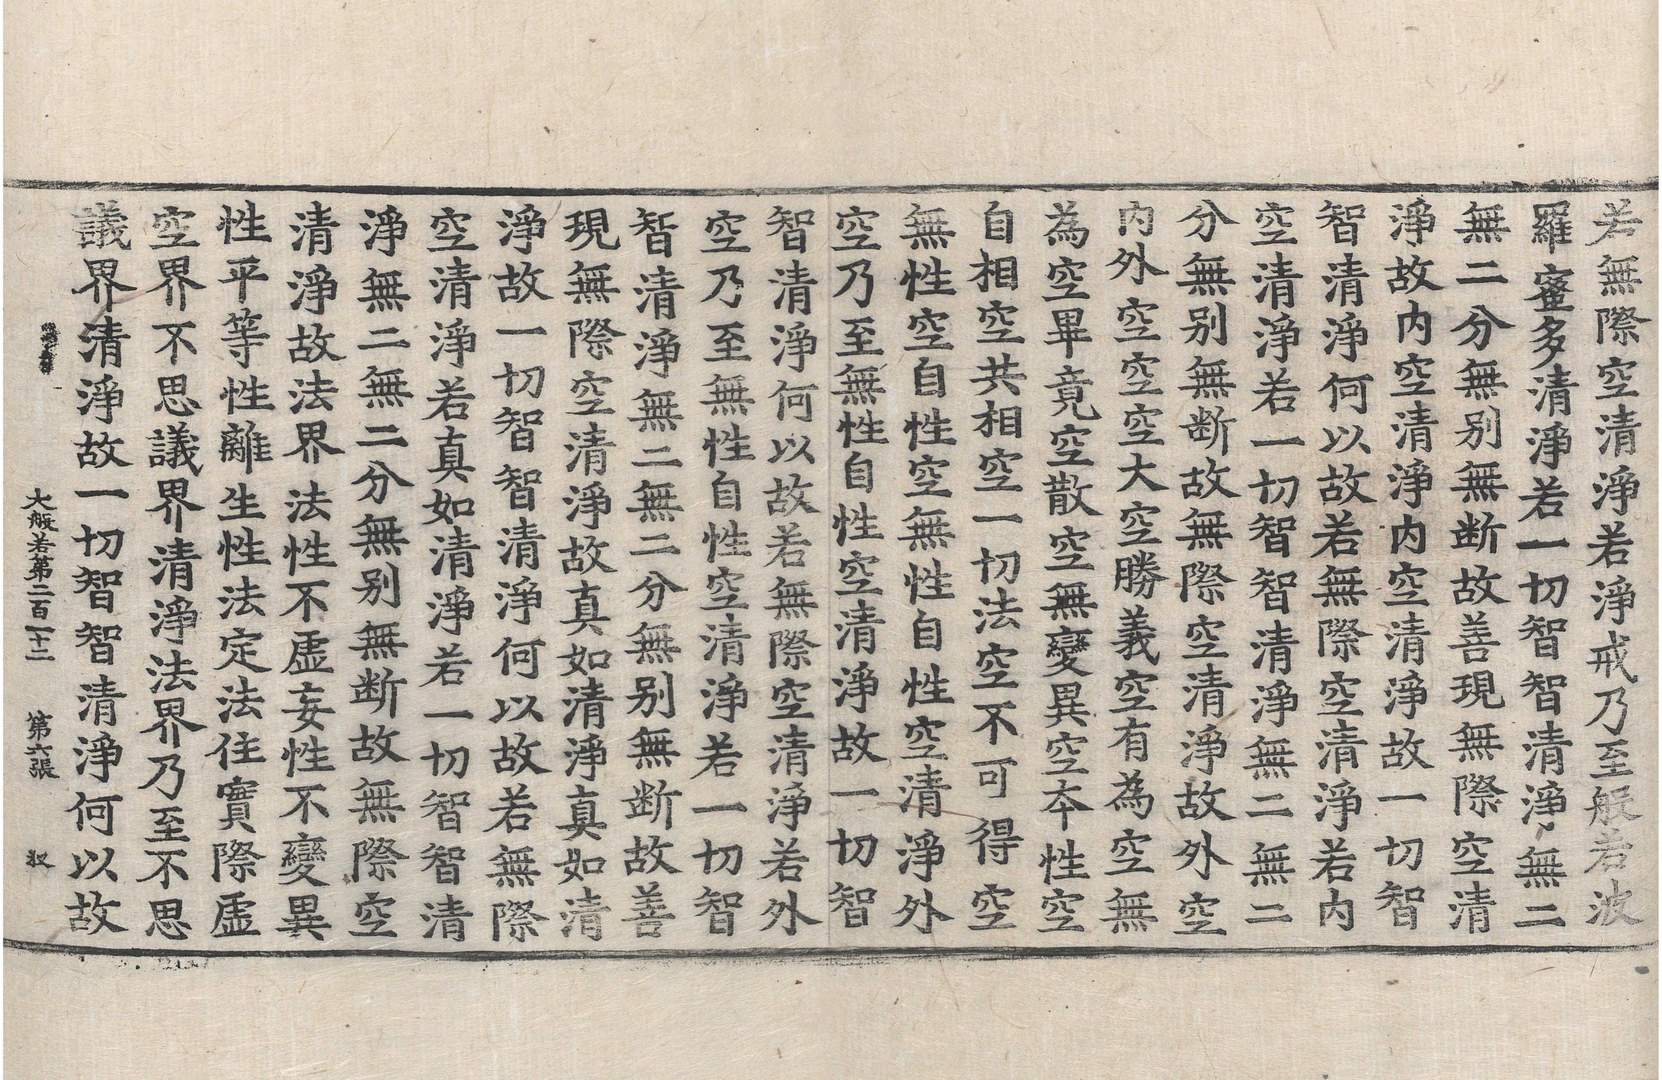 若無際空清淨若淨戒乃至般若波
羅蜜多清淨若一切智智清淨無二
無二分無别無断故善現無際空清
淨故内空清淨内空清淨故一切智
智清淨何以故若無際空清淨若内
空清淨若一切智智清淨無二無二
分無别無断故無際空清淨故外空
内外空空空大空勝義空有為空無
為空畢竟空散空無變異空夲性空
自相空共相空一切法空不可得空
無性空自性空無性自性空清淨外
空乃至無性自性空清淨故一切智
智清淨何以故若無際空清淨若外
空乃至無性自性空清淨若一切智
智清淨無二無二分無别無断故善
現無際空清淨故真如清淨真如清
淨故一切智智清淨何以故若無際
空清淨若真如清淨若一切智智清
淨無二無二分無别無断故無際空
清淨故法界法性不虛妄性不變異
性平等性離生性法定法住實際虛
空界不思議界清淨法界乃至不思
議界清淨故一切智智清淨何以故
大般若第二百一十二 第六張 収